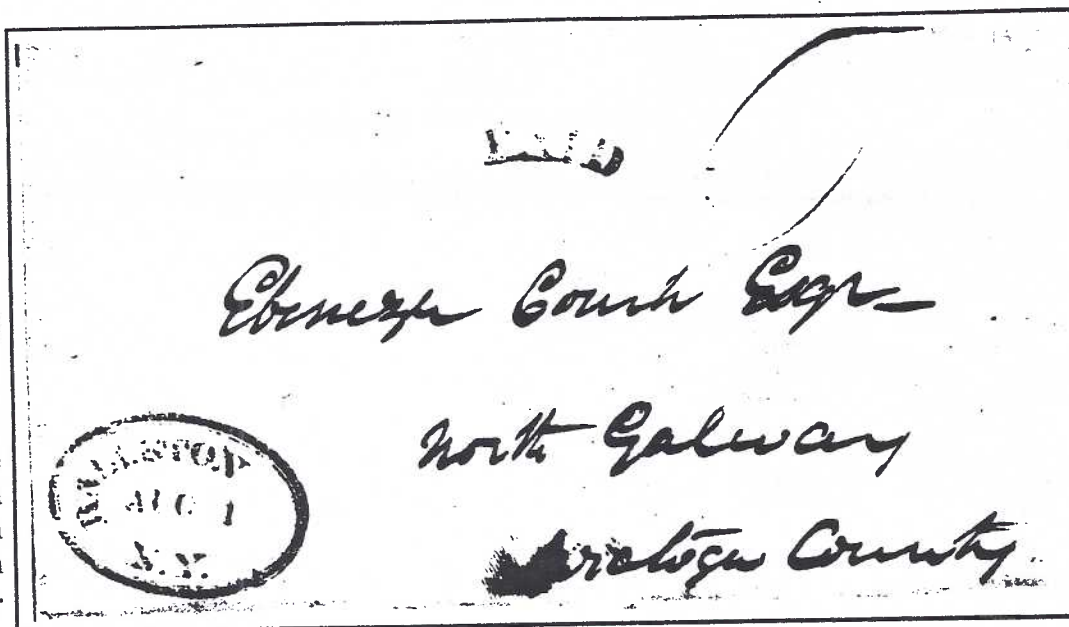 PAID
Ebenezer Couch Esqr
North Galway
Saratoga County
BALLSTON
AUG 1
N.Y.